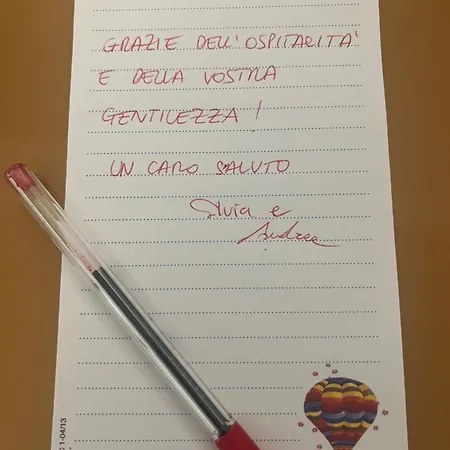 GRAZIE DELL'OSPITALITA'
E DELLA VOSTRA
GENTILEZZA!
UN CARO SALUTO
Silvia e
Andrea
1-04/13